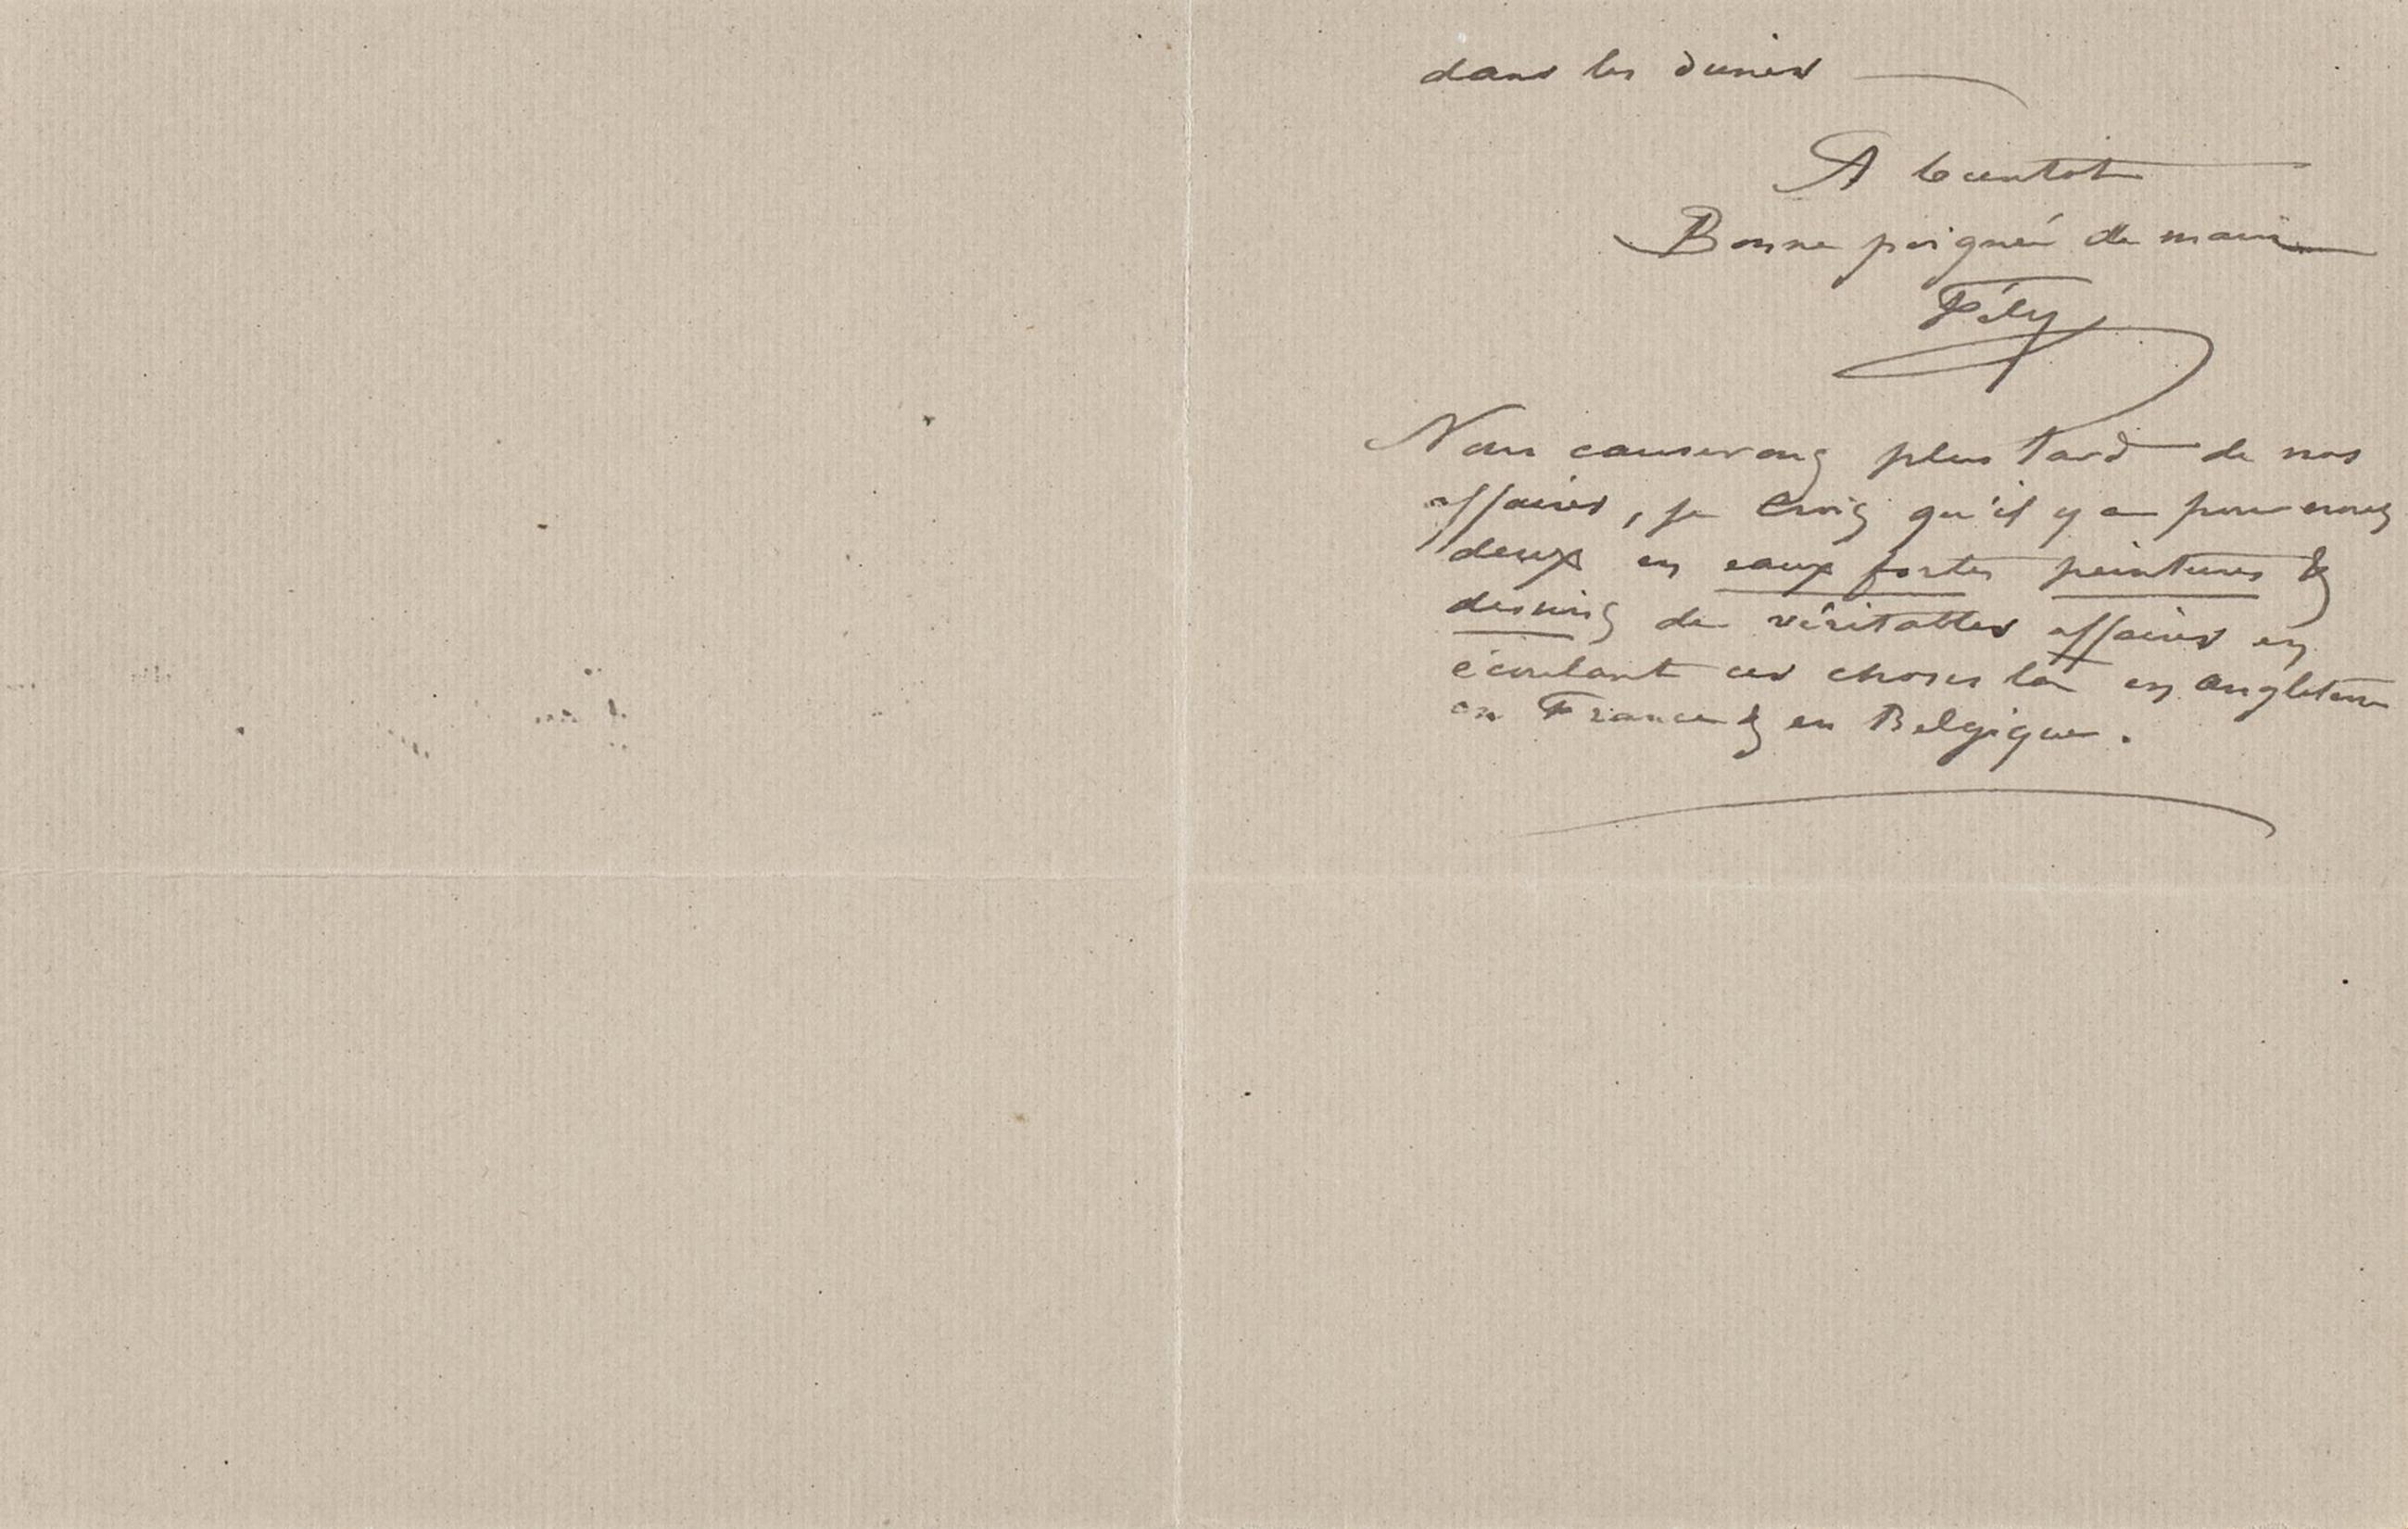 dans les dunes
A bientot
Bonne poignée de main
Fély
Nous causerons plus tard de nos
affaires, je crois qu'il y a pour nous
deux en eaux fortes peintures &
dessins de véritables affaires en
écoulant ces choses la en Angleterre
en France & en Belgique.